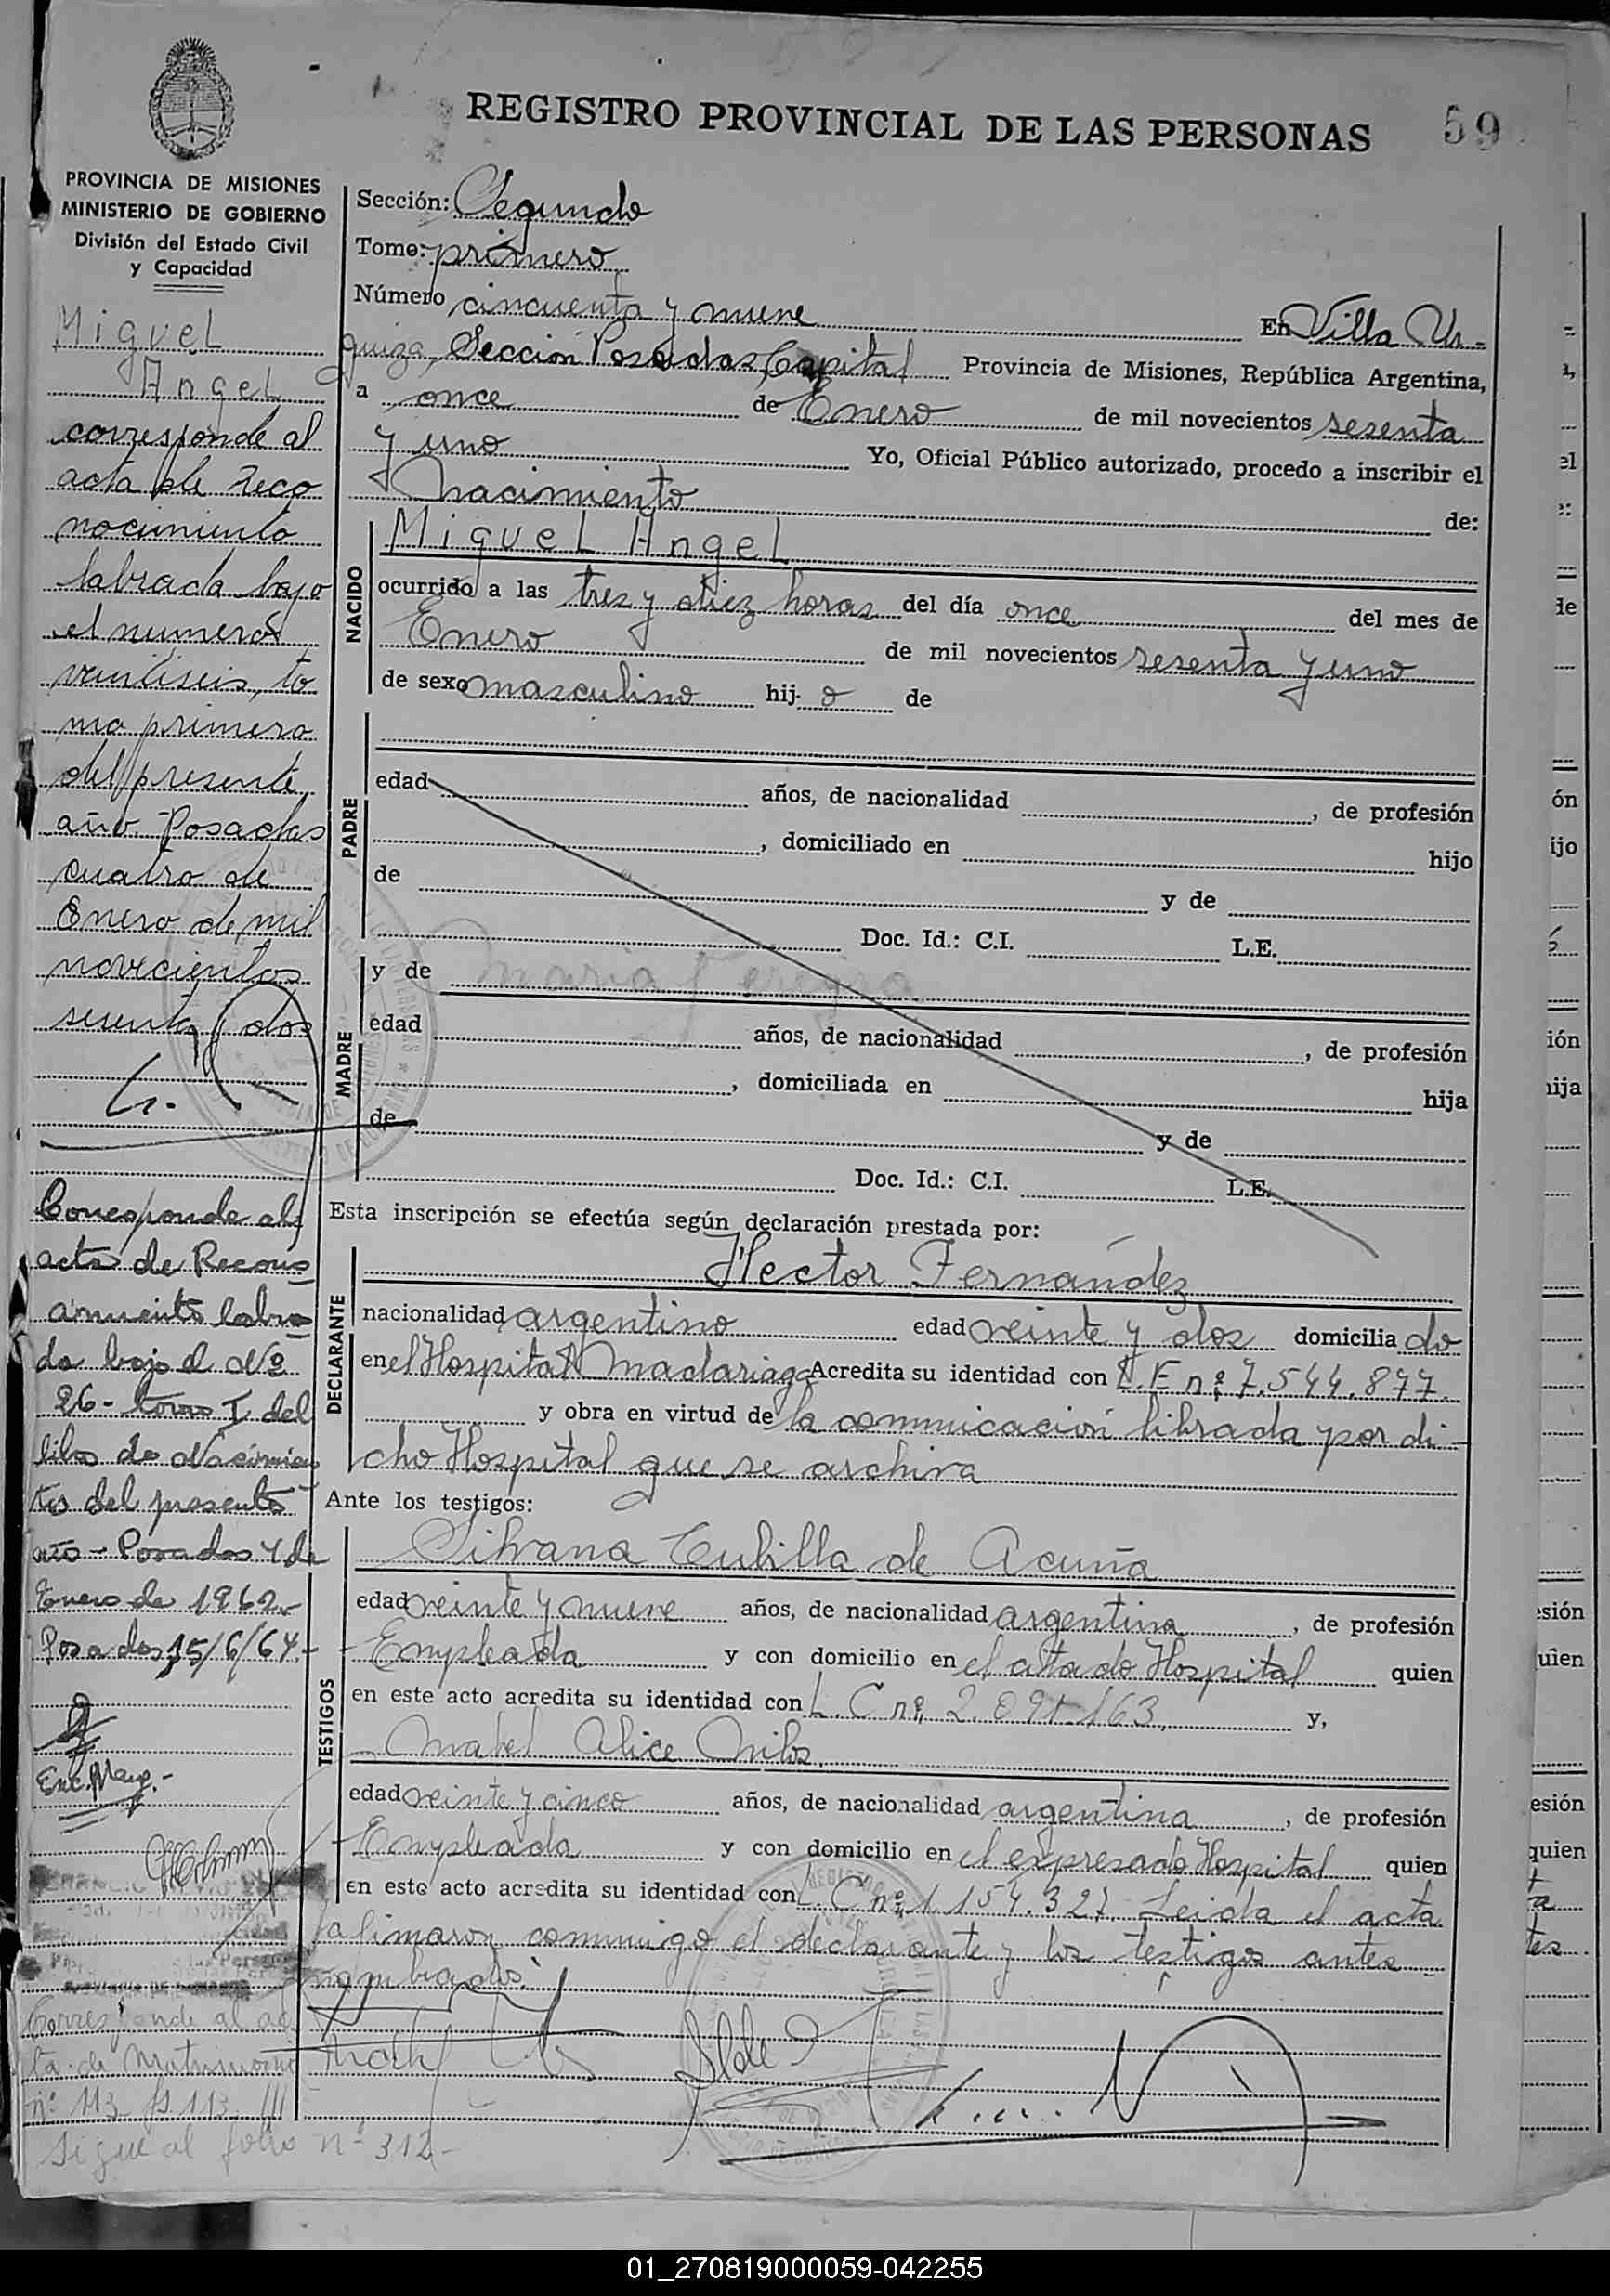 REGISTRO PROVINCIAL DE LAS PERSONAS 59
PROVINCIA DE MISIONES
MINISTERIO DE GOBIERNO
División del Estado Civil
y Capacidad
Miguel
Angel
corresponde al
acta de reco
nocimiento
labrada bajo
el número
veintiseis, to
mo primero
del presente
año. Posadas
cuatro de
Enero de mil
novecientos
sesenta y dos
Corresponde al
acta de Recono
cimiento labra
da bajo el Nº
26 - tomo I del
libro de Nacimien
tos del presente
año - Posadas 4 de
Enero de 1962.
Posadas, 15/6/64.-
Enc. Mayo.-
Corresponde al ac
ta de Matrimonio
nº 113 fº 113
sigue al folio nº 312-
Sección: Segunda
Tomo: primero
Número cincuenta y nueve En Villa Ur-
quiza, Sección Posadas, Capital Provincia de Misiones, República Argentina,
a once de Enero de mil novecientos sesenta
y uno Yo, Oficial Público autorizado, procedo a inscribir el
Nacimiento de:
NACIDO
Miguel Angel
ocurrido a las tres y diez horas del día once del mes de
Enero de mil novecientos sesenta y uno
de sexo masculino hij o de
PADRE
edad años, de nacionalidad , de profesión
, domiciliado en hijo
de y de
Doc. Id.: C.I. L.E.
MADRE
y de Maria
edad años, de nacionalidad , de profesión
, domiciliada en hija
de y de
Doc. Id.: C.I. L.E.
Esta inscripción se efectúa según declaración prestada por:
DECLARANTE
Hector Fernández
nacionalidad argentino edad veinte y dos domicilia do
en el Hospital Madariaga Acredita su identidad con L.E nº 7.544.877.
y obra en virtud de la comunicación librada por di-
cho Hospital que se archiva
Ante los testigos:
TESTIGOS
Silvana Cubilla de Acuña
edad veinte y nueve años, de nacionalidad argentina , de profesión
Empleada y con domicilio en el citado Hospital quien
en este acto acredita su identidad con L.C nº 2.091.163, y,
Mabel Alice
edad veinte y cinco años, de nacionalidad argentina , de profesión
Empleada y con domicilio en el expresado Hospital quien
en este acto acredita su identidad con L.C nº 1.154.327. Leída el acta
la firmaron conmigo el declarante y los testigos antes
nombrados.
01_270819000059-042255